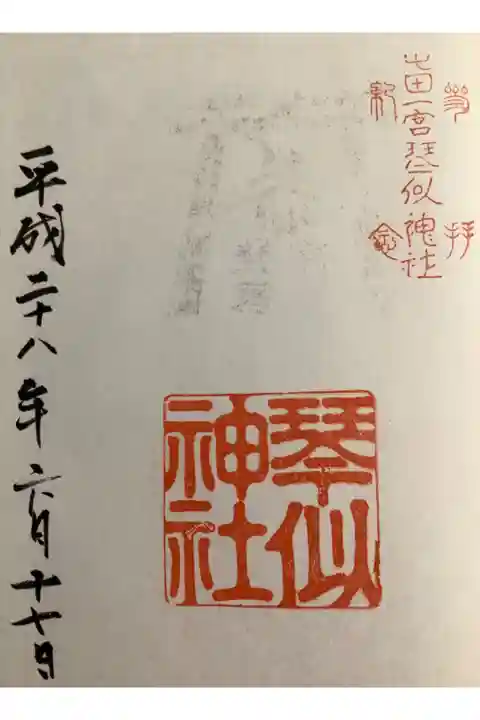 屯田一宮琴似神社
参拝
念
琴似
神社
平成二十八年六月十七日